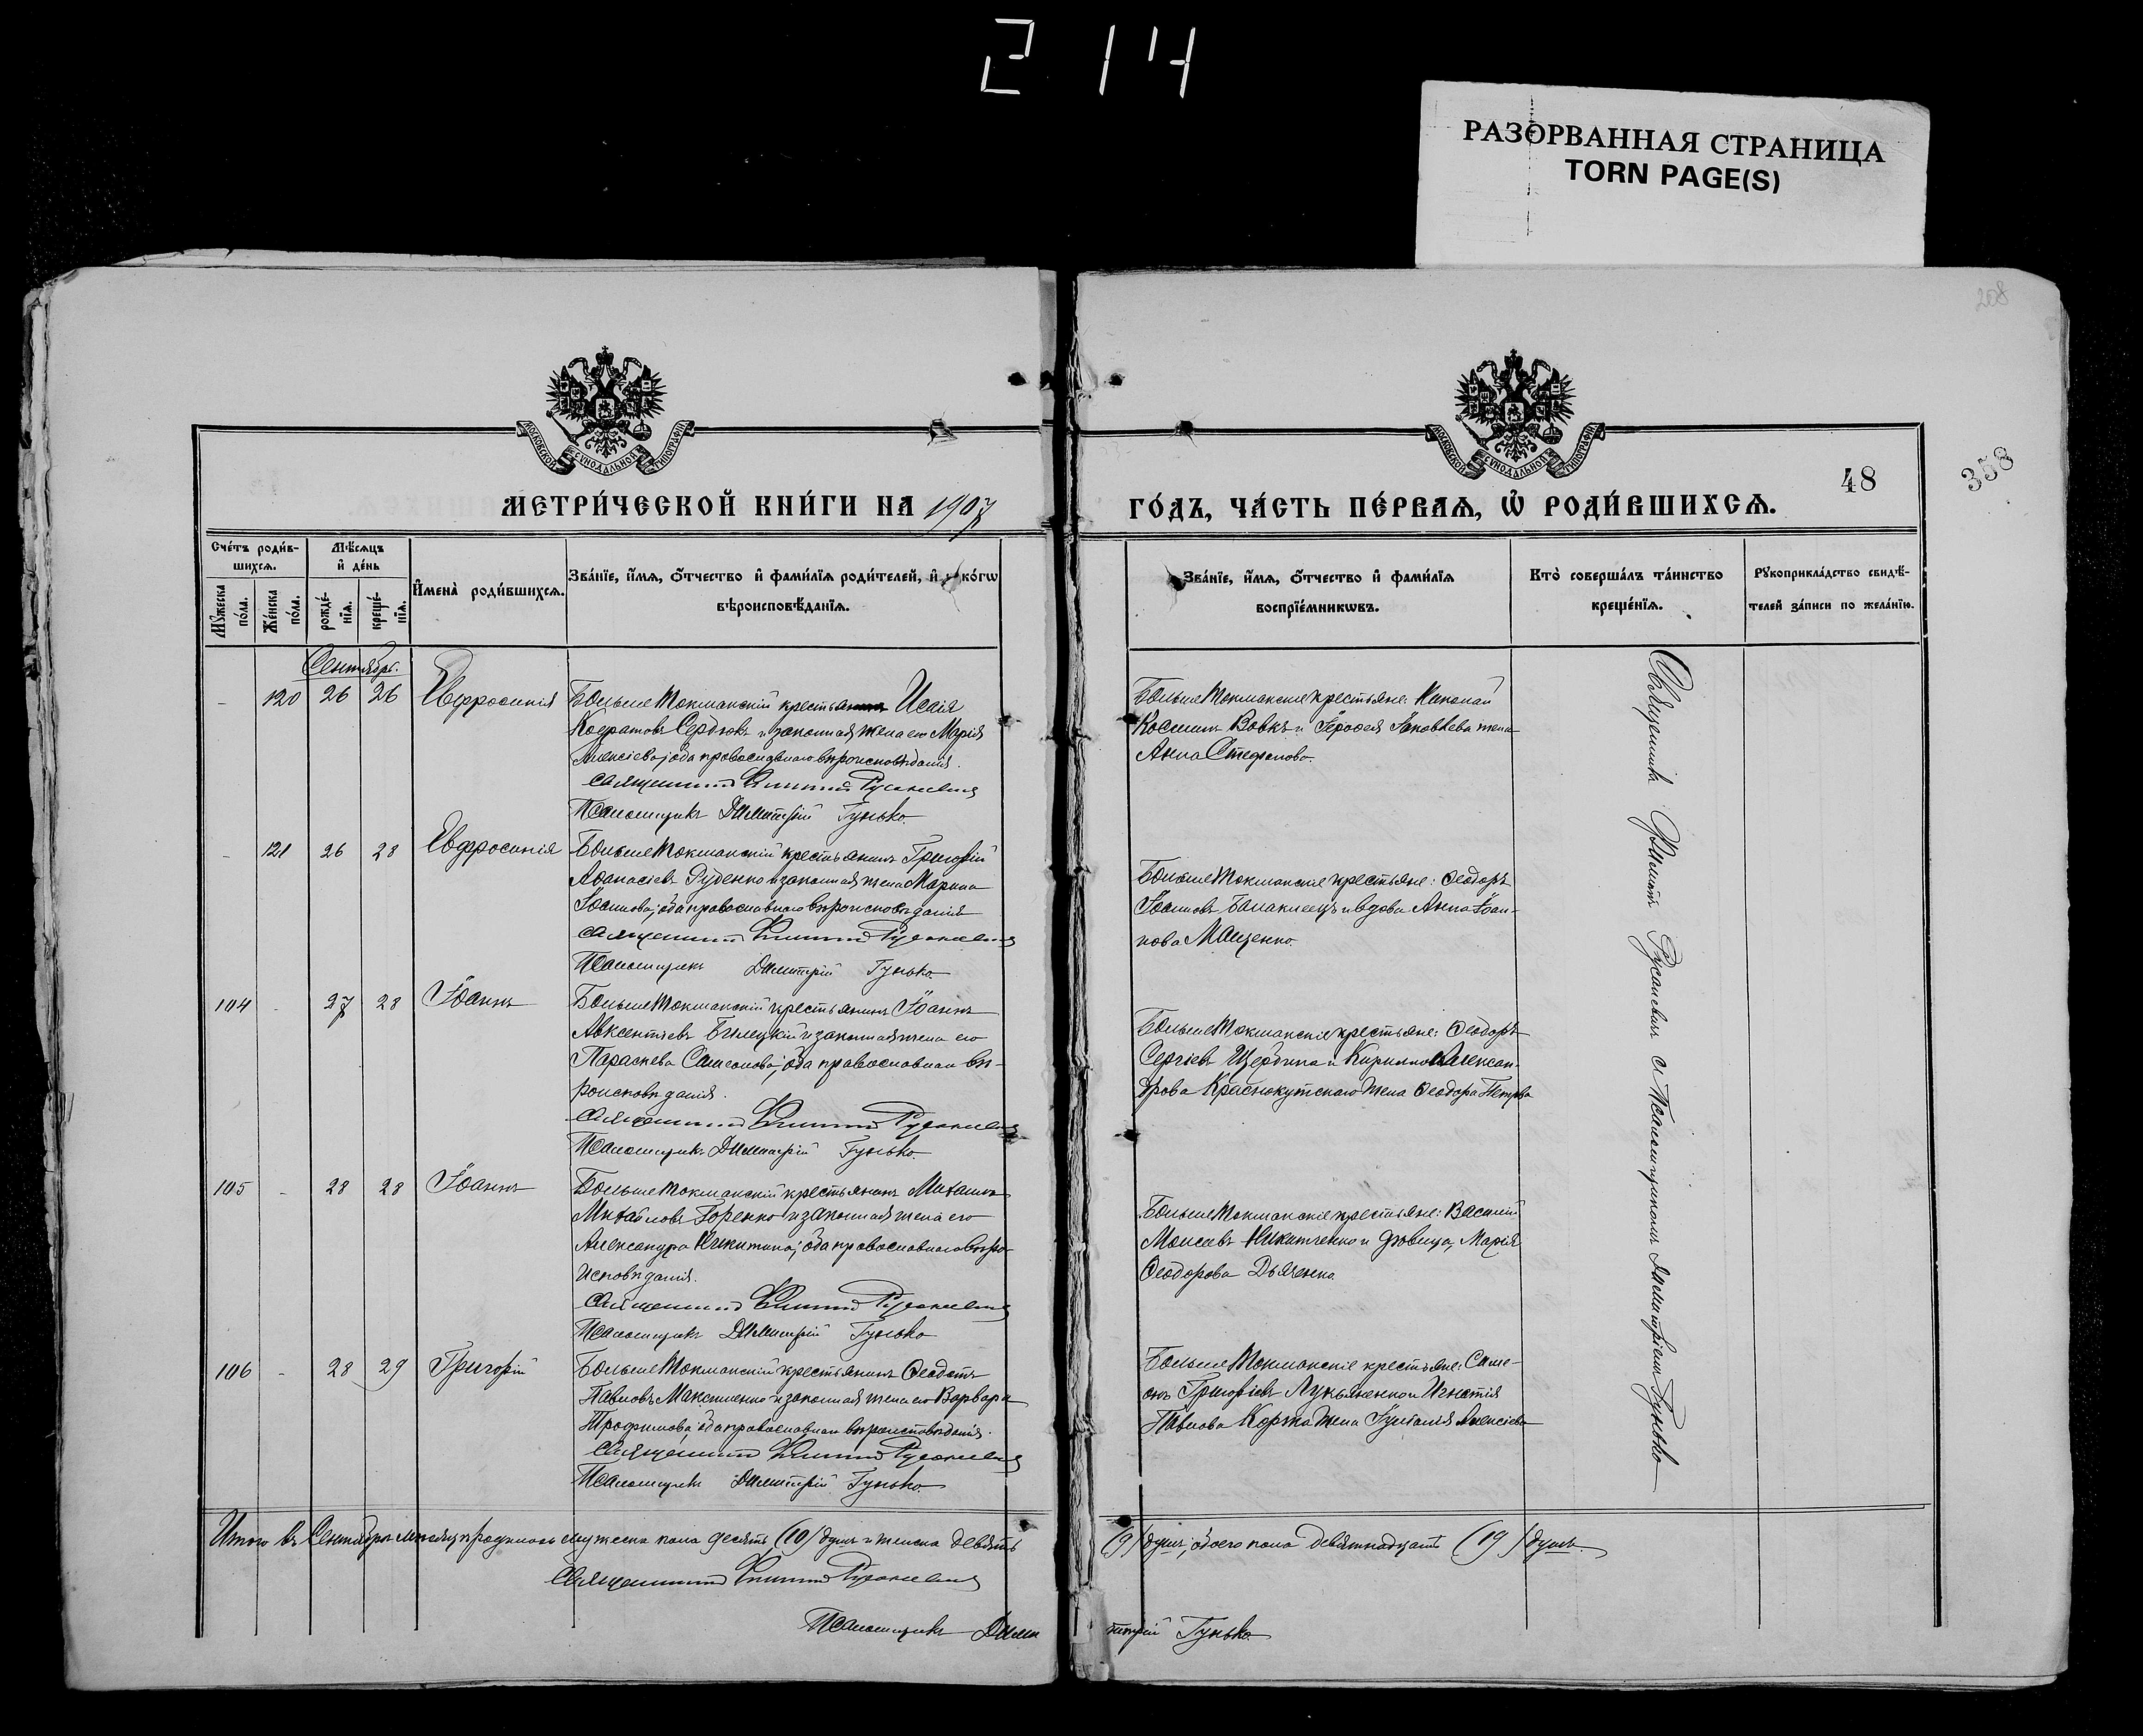 2 14
РАЗОРВАННАЯ СТРАНИЦА
TORN PAGE(S)
208
МОСКОВСКОЙ СѴНОДАЛЬНОЙ ТИПОГРАФІИ
МОСКОВСКОЙ СѴНОДАЛЬНОЙ ТИПОГРАФІИ
48
358
МЕТРИ́ЧЕСКОЙ КНИ́ГИ НА 1907
ГО́ДЪ, ЧА́СТЬ ПЕ́РВАѦ, Ѽ РОДИ́ВШИХСѦ.
Сче́тъ роди́в-
шихсѧ.
Мѣ́сѧцъ
и҆ де́нь
Мꙋ́жеска по́ла.
Же́нска по́ла.
рожде́-
нїѧ.
креще́-
нїѧ.
И҆мена̀ роди́вшихсѧ.
Зва́нїе, и҆́мѧ, ѻ҆́тчество и҆ фами́лїѧ роди́телей, и҆ ко́гѡ
вѣроисповѣ́данїѧ.
Зва́нїе, и҆́мѧ, ѻ҆́тчество и҆ фами́лїѧ
воспрїе́мникѡвъ.
Кто̀ соверша́лъ та́инство
креще́нїѧ.
Рꙋкоприкла́дство свидѣ́-
телей за́писи по жела́нїю.
Сентябрь.
- 120 26 26 Евфросинія
Больше Токмакскій крестьянинъ Исаія
Кодратовъ Сердюкъ и законная жена его Марія
Алексіева; оба православнаго вѣроисповѣданія.
Священникъ Филиппъ Русаневичъ
Псаломщикъ Димитрій Гунько.
Больше Токмакскіе крестьяне: Николай
Косминъ Вовкъ и Іероѳея Яковлева жена
Анна Стефанова.
- 121 26 28 Евфросинія
Больше Токмакскій крестьянинъ Григорій
Аѳанасіевъ Руденко и законная жена Марина
Іоаннова; оба православнаго вѣроисповѣданія
Священникъ Филиппъ Русаневичъ
Псаломщикъ Димитрій Гунько.
Больше Токмакскіе крестьяне: Ѳеодоръ
Іоанновъ Балаклеецъ и вдова Анна Іоан-
нова Мащенко.
104 - 27 28 Іоаннъ
Больше Токмакскій крестьянинъ Іоаннъ
Авксентіевъ Билецкій и законная жена его
Параскева Самсонова; оба православнаго вѣ-
роисповѣданія.
Священникъ Филиппъ Русаневичъ
Псаломщикъ Димитрій Гунько.
Больше Токмакскіе крестьяне: Ѳеодоръ
Сергіевъ Щербина и Кирилла Алексан-
дрова Краснокутскаго жена Ѳеодора Петрова
105 - 28 28 Іоаннъ
Больше Токмакскій крестьянинъ Михаилъ
Михайловъ Горенко и законная жена его
Александра Никитина; оба православнаго вѣро-
исповѣданія.
Священникъ Филиппъ Русаневичъ
Псаломщикъ Димитрій Гунько
Больше Токмакскіе крестьяне: Василій
Моисеевъ Никитченко и дѣвица, Марія
Ѳеодорова Дьяченко
106 - 28 29 Григорій
Больше Токмакскій крестьянинъ Ѳеодотъ
Павловъ Максименко и законная жена его Варвара
Трофимова; оба православнаго вѣроисповѣданія.
Священникъ Филиппъ Русаневичъ
Псаломщикъ Димитрій Гунько.
Больше Токмакскіе крестьяне: Симе-
онъ Григоріевъ Лукьяненко и Игнатія
Павлова Коржа жена Іуліанія Алексіева
Священникъ Филиппъ Русаневичъ съ Псаломщикомъ Димитріемъ Гунько
Итого въ Сентябрѣ мѣсяцѣ родилось мужеска пола десять (10) душъ и женска девять
(9) душъ; обоего пола девятнадцать (19) душъ.
Священникъ Филиппъ Русаневичъ
Псаломщикъ Димитрій Гунько.